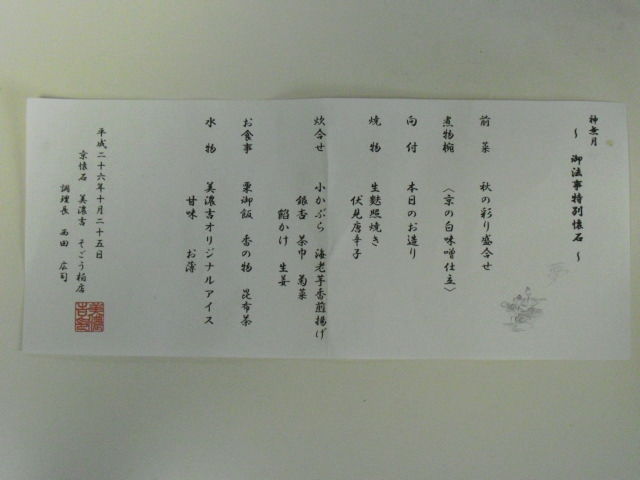 神無月
～ 御法事特別懐石 ～
前菜 秋の彩り盛合せ
煮物椀 〈京の白味噌仕立〉
向付 本日のお造り
焼物 生麩照焼き
伏見唐辛子
炊合せ 小かぶら 海老芋香煎揚げ
銀杏 茶巾 菊菜
餡かけ 生姜
お食事 栗御飯 香の物 昆布茶
水物 美濃吉オリジナルアイス
甘味 お薄
平成二十六年十月二十五日
京懐石 美濃吉 そごう柏店
調理長 西田 広司
美濃吉